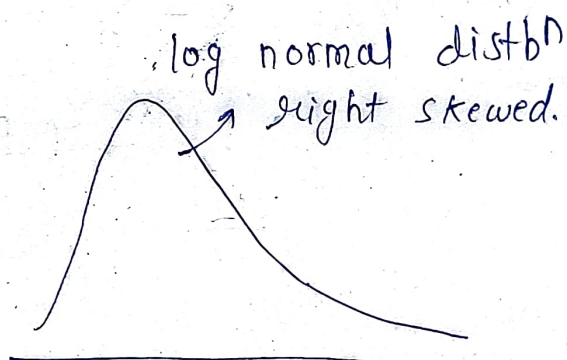 log normal distbn
right skewed.